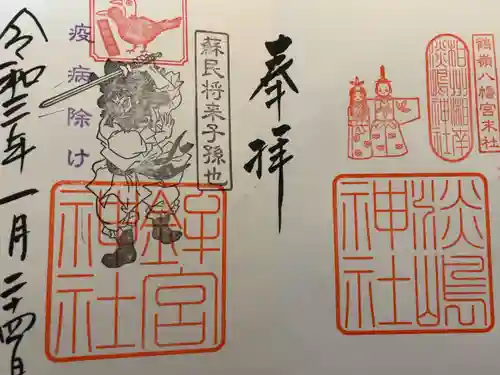 鶴嶺八幡宮末社
相州湘南
淡嶋神社
淡嶋
神社
奉拝
蘇民将来子孫也
疫病除け
鉾宮
神社
令和三年一月二十四日